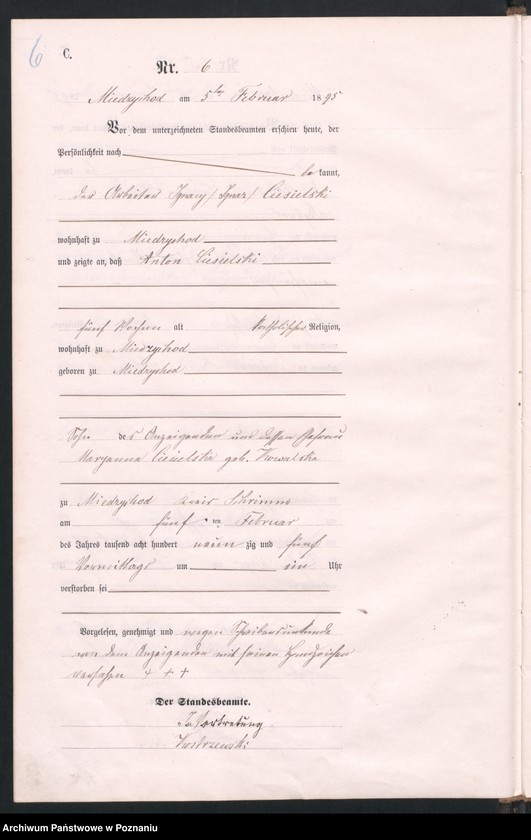 6
C.
Nr. 6
Miedzychod am 5ten Februar 1895
Vor dem unterzeichneten Standesbeamten erschien heute, der
Persönlichkeit nach
be kannt,
der Arbeiter Ignacy / Ignaz / Ciesielski
wohnhaft zu Miedzychod
und zeigte an, daß Anton Ciesielski
fünf Wochen alt katholischer Religion,
wohnhaft zu Miedzychod
geboren zu Miedzychod
Sohn des Anzeigenden und dessen Ehefrau
Maryanna Ciesielska geb. Kowalska
zu Miedzychod Kreis Schrimm
am fünf ten Februar
des Jahres tausend acht hundert neun zig und fünf
Vormittags um ein Uhr
verstorben sei
Vorgelesen, genehmigt und wegen Schreibensunkunde
von dem Anzeigenden mit seinen Handzeichen
versehen + + +
Der Standesbeamte.
In Vertretung
Kostrzewski
Archiwum Państwowe w Poznaniu